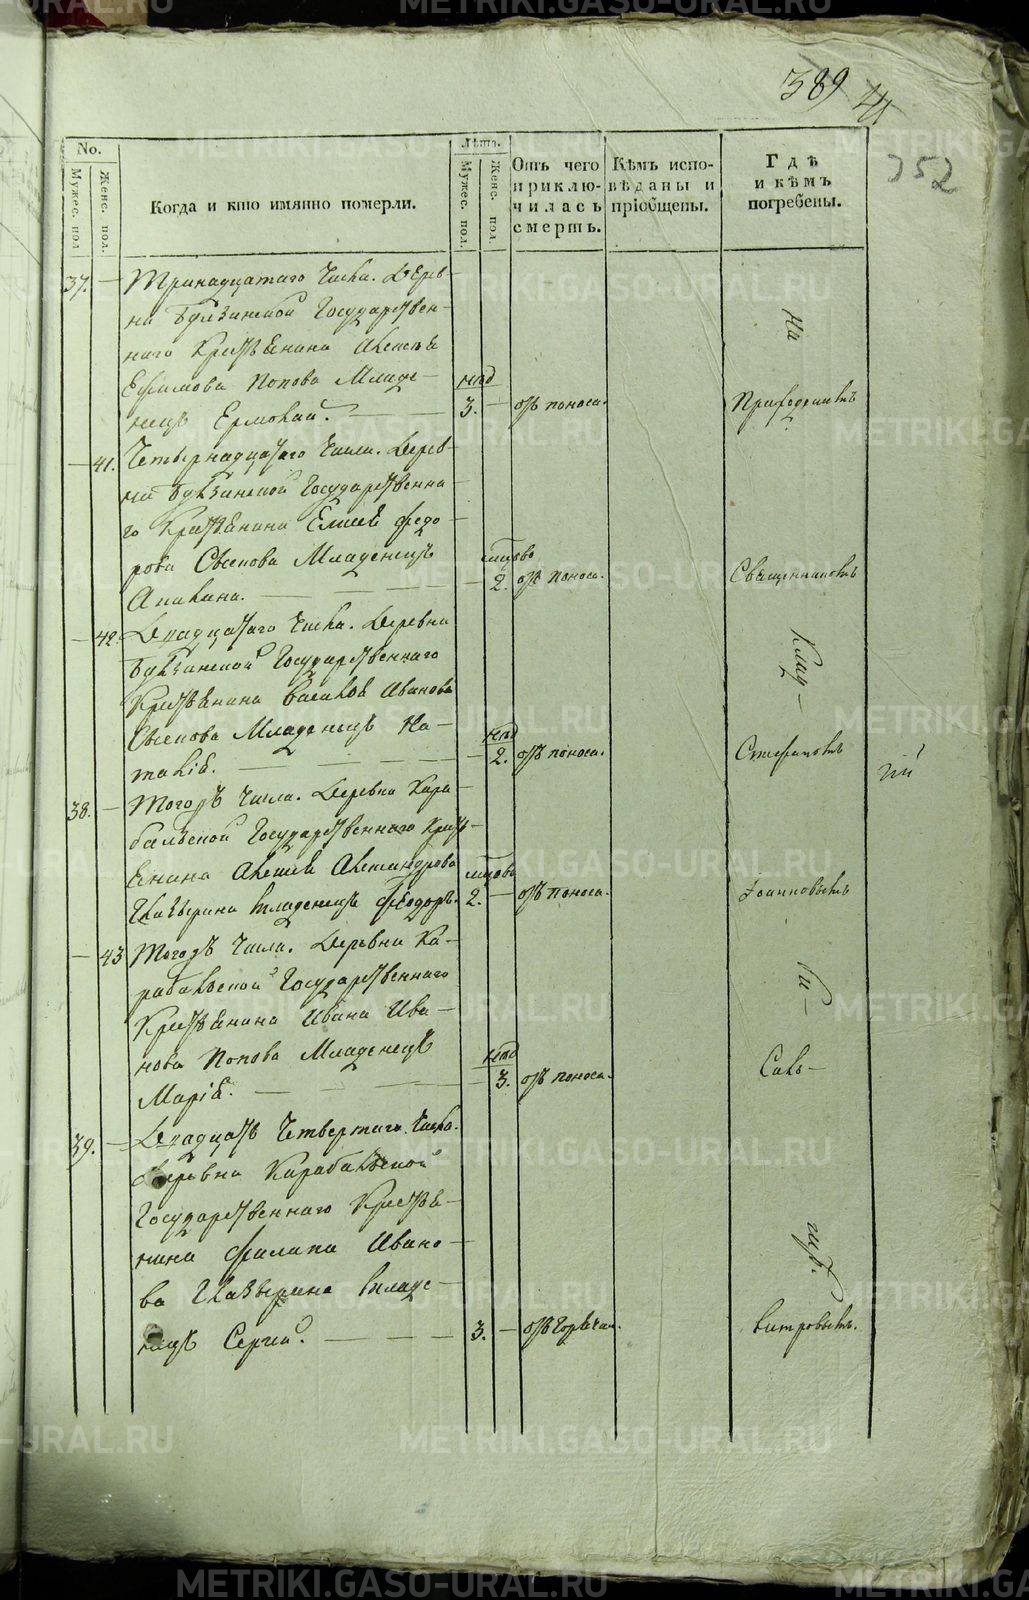 389
352
No.
Мужес. пол
Женс. пол.
Когда и кто имянно померли.
Лѣта.
Мужес. пол.
Женс. пол
Отъ чего
приклю-
чилась
смерть.
Кѣмъ испо-
вѣданы и
пріобщены.
Гдѣ
и кѣмъ
погребены.
37. — Тринадцатаго Числа. Дерев-
ни Булзинской Государствен-
наго Крестьянина Алексѣя
Ефимова Попова Младе-
нецъ Ермолай. — нед 3. — отъ поноса.
На
Приходскомъ
— 41. Четырнадцатаго Числа. Дерев-
ни Булзинской Государственна-
го Крестьянина Елисея Федо-
рова Овсепова Младенецъ
Акилина. — 2. отъ поноса.
Священникомъ
— 42. Двадцатаго Числа. Деревни
Булзинской Государственнаго
Крестьянина Василья Иванова
Младенецъ На-
талія. — нед 2. отъ поноса.
Клад-
Стефаномъ
38. — Тогожъ Числа. Деревни Кара-
больской Государственнаго Крест-
янина Алексѣя Александрова
младенецъ Феодоръ. 2. — отъ поноса.
Іоанновымъ
— 43 Тогожъ Числа. Деревни Ка-
рабольской Государственнаго
Крестьянина Ивана Ива-
нова Попова Младенецъ
Марія. — нед 3. отъ поноса.
Сель-
39. — Двадцать Четвертаго Числа.
Деревни Карабольской
Государственнаго Крестья-
нина Филипа Ивано-
ва младе-
нецъ Сергий. — 3. — отъ горячки.